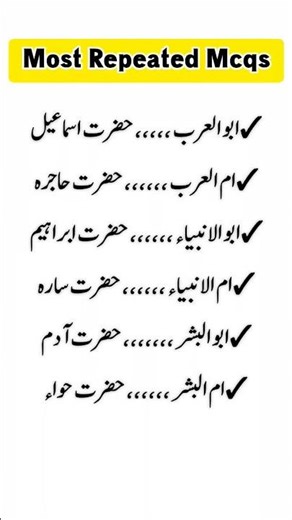 Most Repeated Mcqs
✔ابوالعرب ،،،،، حضرت اسماعیل
✔ام العرب ،،،،،، حضرت حاجرہ
✔ابوالانبیاء ،،،،،، حضرت ابراہیم
✔ام الانبیاء ،،،،،، حضرت سارہ
✔ابوالبشر ،،،،،،، حضرت آدم
✔ام البشر ،،،،،، حضرت حواء